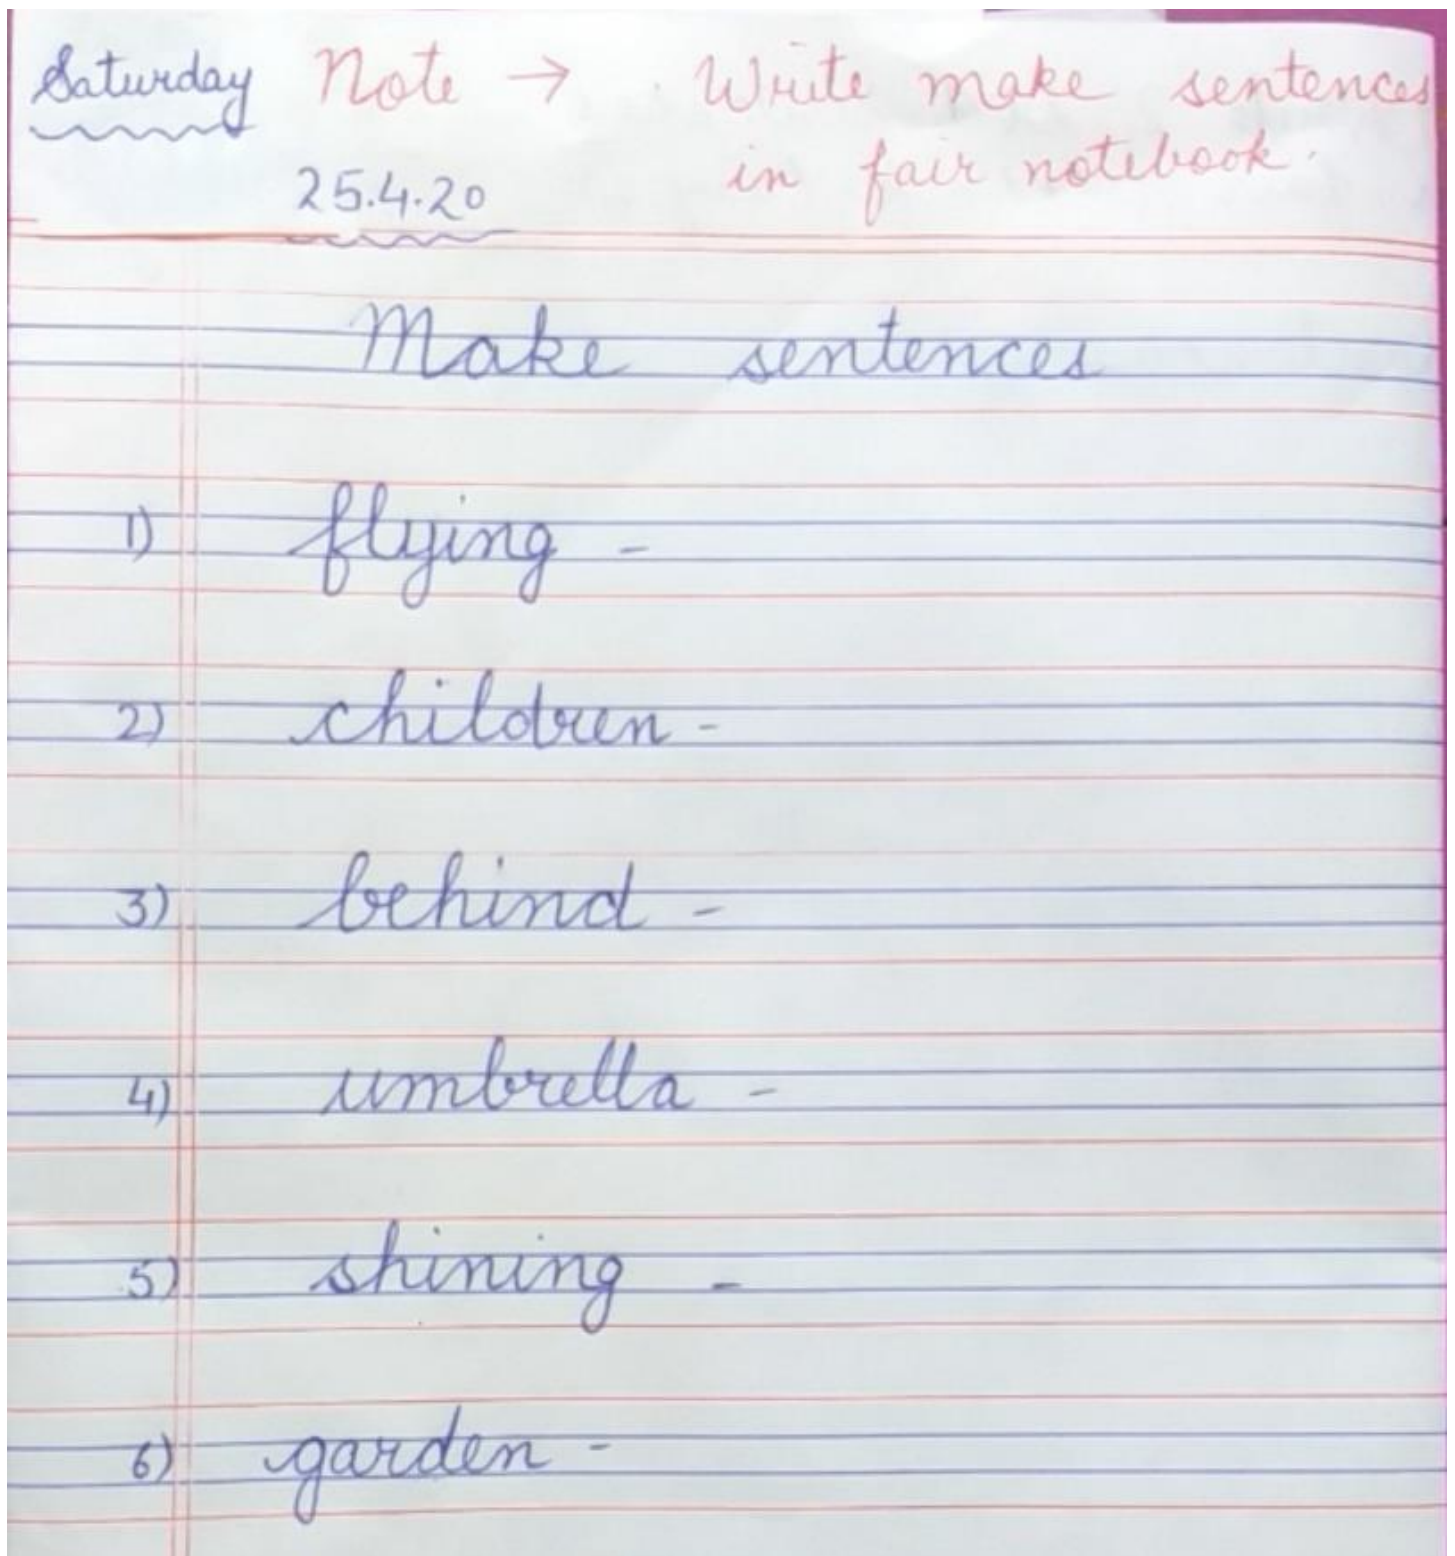 Saturday Note → Write make sentences
in fair notebook.
25.4.20
Make sentences
1) flying -
2) children -
3) behind -
4) umbrella -
5) shining -
6) garden -